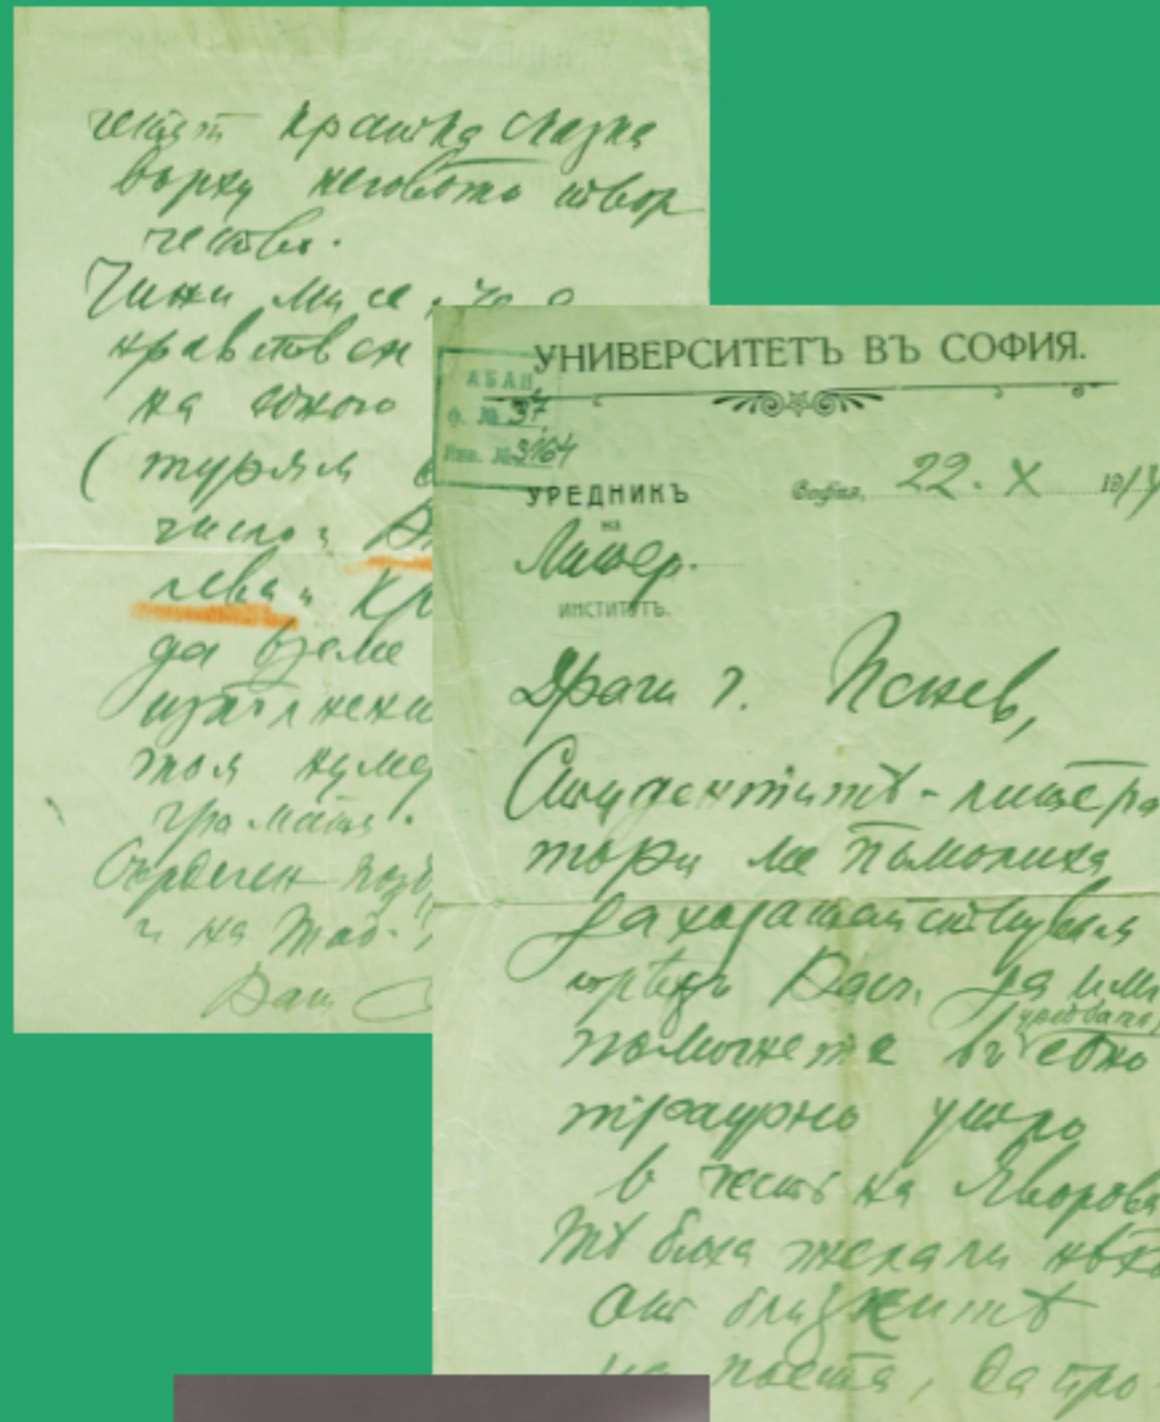 четат кратка сказка
върху неговото твор
чество.
Чини ми се, че е
нравствен
на едного
(турям
число:
лева:
да време
тоя нуме
грамата.
Сърдечен
и на
Ваш
УНИВЕРСИТЕТЪ ВЪ СОФИЯ.
АБАН
ф. № 37
Инв. № 3164
УРЕДНИКЪ
на
Литер.
ИНСТИТУТЪ.
София, 22. X 191
Драги г. Пенев,
Студентитѣ-литера
тори ме помолиха
да ходатайствувам
прѣдъ Васъ, да им
помогнете въ едно
траурно утро
в честь на Яворова
Тѣ биха желали нѣк
от близкитѣ
на поета, да про